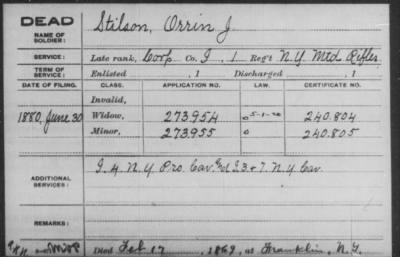 DEAD
NAME OF SOLDIER: Stilson, Orrin J
SERVICE: Late rank, Corp Co. I, 1 Reg't N.Y. Mtd Rifles
TERM OF SERVICE: Enlisted , 1 Discharged , 1
DATE OF FILING. CLASS. APPLICATION NO. LAW. CERTIFICATE NO.
Invalid,
1880, June 30 Widow, 273.954 240.804
Minor, 273.955 240.805
ADDITIONAL SERVICES: I. 4. N.Y. Pro. Cav. & I. 3. & 7. N.Y. Cav.
REMARKS:
Died Feb 17, 1869, at Franklin, N.Y.